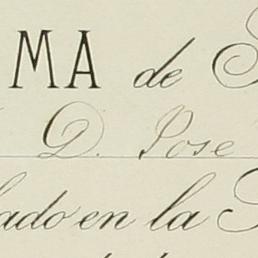 MA de
D. Jose
lado en la